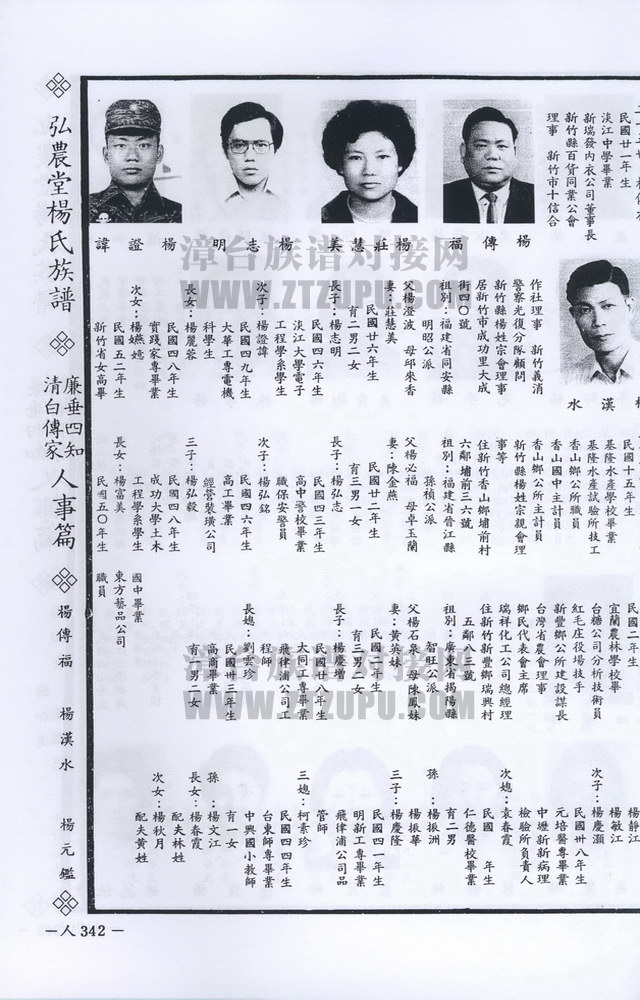 弘農堂楊氏族譜
廉垂四知
清白傳家
人事篇
楊傳福
楊漢水
楊元鑑
民國廿一年生
淡江中學畢業
新瑞發內衣公司董事長
新竹縣百貨同業公會
理事 新竹市十信合
楊傳福
楊莊慧美
楊志明
楊證諱
作社理事 新竹義消
警察光復分隊顧問
新竹縣楊姓宗會理事
居新竹市成功里大成
街四〇號
祖別:福建省同安縣
明昭公派
父楊澄波 母邱來香
妻:莊慧美
民國廿六年生
育二男二女
長子:楊志明
民國四六年生
淡江大學電子
工程學系學生
次子:楊證諱
民國四九年生
大華工專電機
科學生
長女:楊麗蓉
民國四八年生
實踐家專畢業
次女:楊燕嬑
民國五二年生
新竹省女高畢
漢水
民國十五年生
基隆水產學校畢業
基隆水產試驗所技工
香山鄉公所職員
香山國中主計員
香山鄉公所主計員
新竹縣楊姓宗親會理
事等
住新竹香山鄉埔前村
六鄰埔前三六號
祖別:福建省晉江縣
孫楨公派
父楊必福 母卓玉蘭
妻:陳金燕
民國廿二年生
育三男一女
長子:楊弘志
民國四三年生
高中警校畢業
職保安警員
次子:楊弘銘
民國四六年生
高工畢業
經營裝璜公司
三子:楊弘毅
民國四八年生
成功大學土木
工程學系學生
長女:楊富美
民國五〇年生
國中畢業
東方藝品公司
職員
民國二年生
宜蘭農林學校畢
台糖公司分析技術員
紅毛庄役場技手
新豐鄉公所建設課長
台灣省農會理事
鄉民代表會主席
瑞祥化工公司總經理
住新竹新豐鄉瑞興村
五鄰三號
祖別:廣東省揭陽縣
智旺公派
父楊石泉 母陳鳳妹
妻:黃英妹
民國 年生
育三男二女
長子:楊慶增
民國廿八年生
大同工專畢業
飛律浦公司工
程師
長媳:劉雲珍
民國卅三年生
高商畢業
育二男二女
楊靜江
楊敏江
次子:楊慶灝
民國卅八年生
元培醫專畢業
中壢新新病理
檢驗所負責人
次媳:袁春霞
民國 年生
仁德醫校畢業
育二男
孫:楊振洲
楊振華
三子:楊慶隆
民國四一年生
明新工專畢業
飛律浦公司品
管師
三媳:柯素珍
民國四四年生
台東師專畢業
中興國小教師
育一女
孫:楊文江
長女:楊春霞
配夫林姓
次女:楊秋月
配夫黃姓
—人342—
漳台族谱对接网
WWW.ZTZUPU.COM
漳台族谱对接网
WWW.ZTZUPU.COM